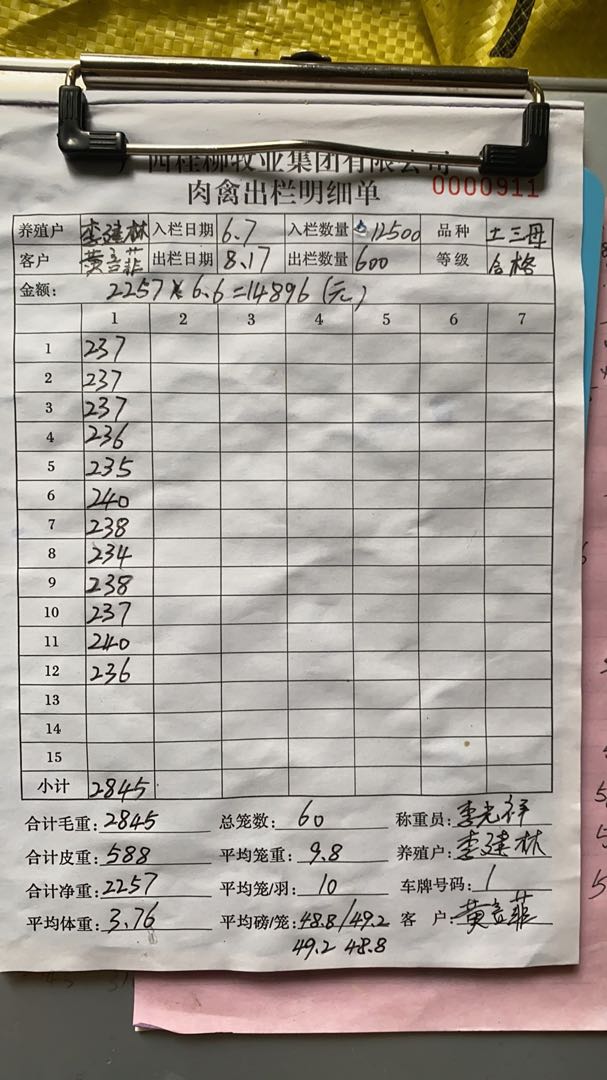 广西桂柳牧业集团有限公司
肉禽出栏明细单 0000911
养殖户 李建林 入栏日期 6.7 入栏数量 12500 品种 土三母
客户 黄言菲 出栏日期 8.17 出栏数量 600 等级 合格
金额: 2257×6.6=14896(元)
1 2 3 4 5 6 7
1 237
2 237
3 237
4 236
5 235
6 240
7 238
8 234
9 238
10 237
11 240
12 236
13
14
15
小计 2845
合计毛重: 2845 总笼数: 60 称重员: 李光祥
合计皮重: 588 平均笼重: 9.8 养殖户: 李建林
合计净重: 2257 平均笼/羽: 10 车牌号码: 1
平均体重: 3.76 平均磅/笼: 48.8/49.2 客 户: 黄言菲
49.2 48.8